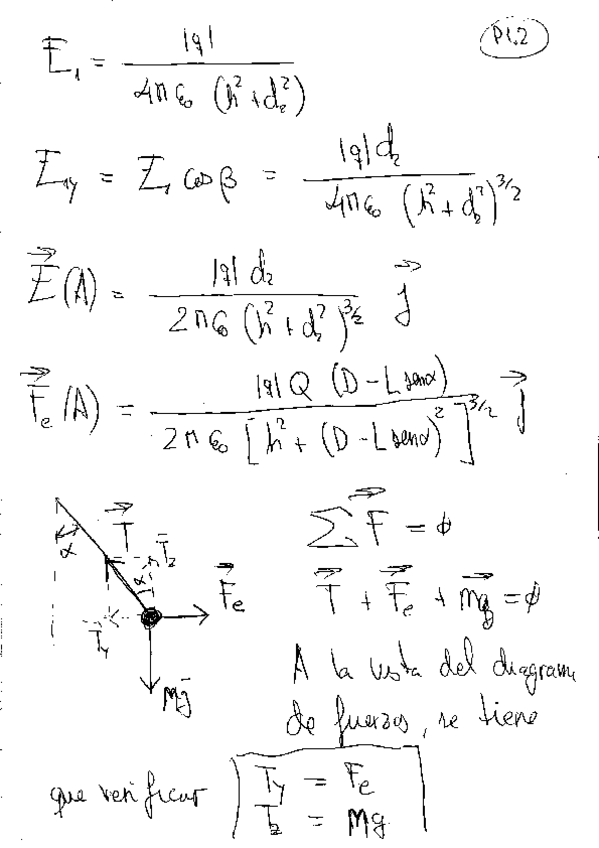 P1.2
E₁ = |q| / 4πε₀ (h² + d₂²)
E₁y = E₁ cos β = |q| d₂ / 4πε₀ (h² + d₂²)^3/2
E⃗(A) = |q| d₂ / 2πε₀ (h² + d₂²)^3/2 j⃗
F⃗e(A) = |q| Q (D - L senα) / 2πε₀ [h² + (D - L senα)²]^3/2 j⃗
α T⃗ T_z α F⃗e T_y Mg⃗
∑F⃗ = ϕ
T⃗ + F⃗e + mg⃗ = ϕ
A la vista del diagrama
de fuerzas, se tiene
que verificar
T_y = Fe
T_z = Mg